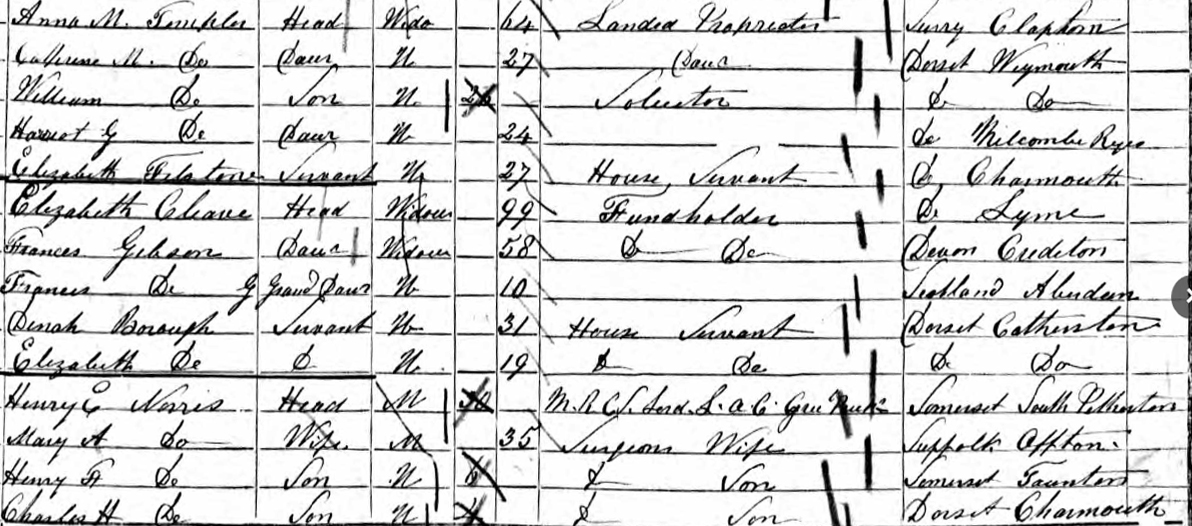 Anna M. Templer Head Wido 64 Landed Proprietor Surry Clapham
Catherine M. Do Daur U 27 Daur Dorset Weymouth
William Do Son U Solicitor Do Do
Harriot G Do Daur U 24 do Milcombe Regis
Elizabeth Servant U 27 House Servant Do Charmouth
Elizabeth Cleave Head Widow 99 Fundholder Do Lyme
Frances Gibson Daur Widow 58 Do Do Devon Crediton
Frances Do G Grand Daur U 10 Scotland Aberdeen
Dinah Borough Servant U 31 House Servant Dorset Catherston
Elizabeth Do D U 19 Do Do Do Do
Henry E Norris Head M M.R.C.S. Lond. L.A.C. Somerset South Petherton
Mary A Do Wife M 35 Surgeons Wife Suffolk Offton
Henry F Do Son U Do Son Somerset Taunton
Charles H Do Son U Do Son Dorset Charmouth